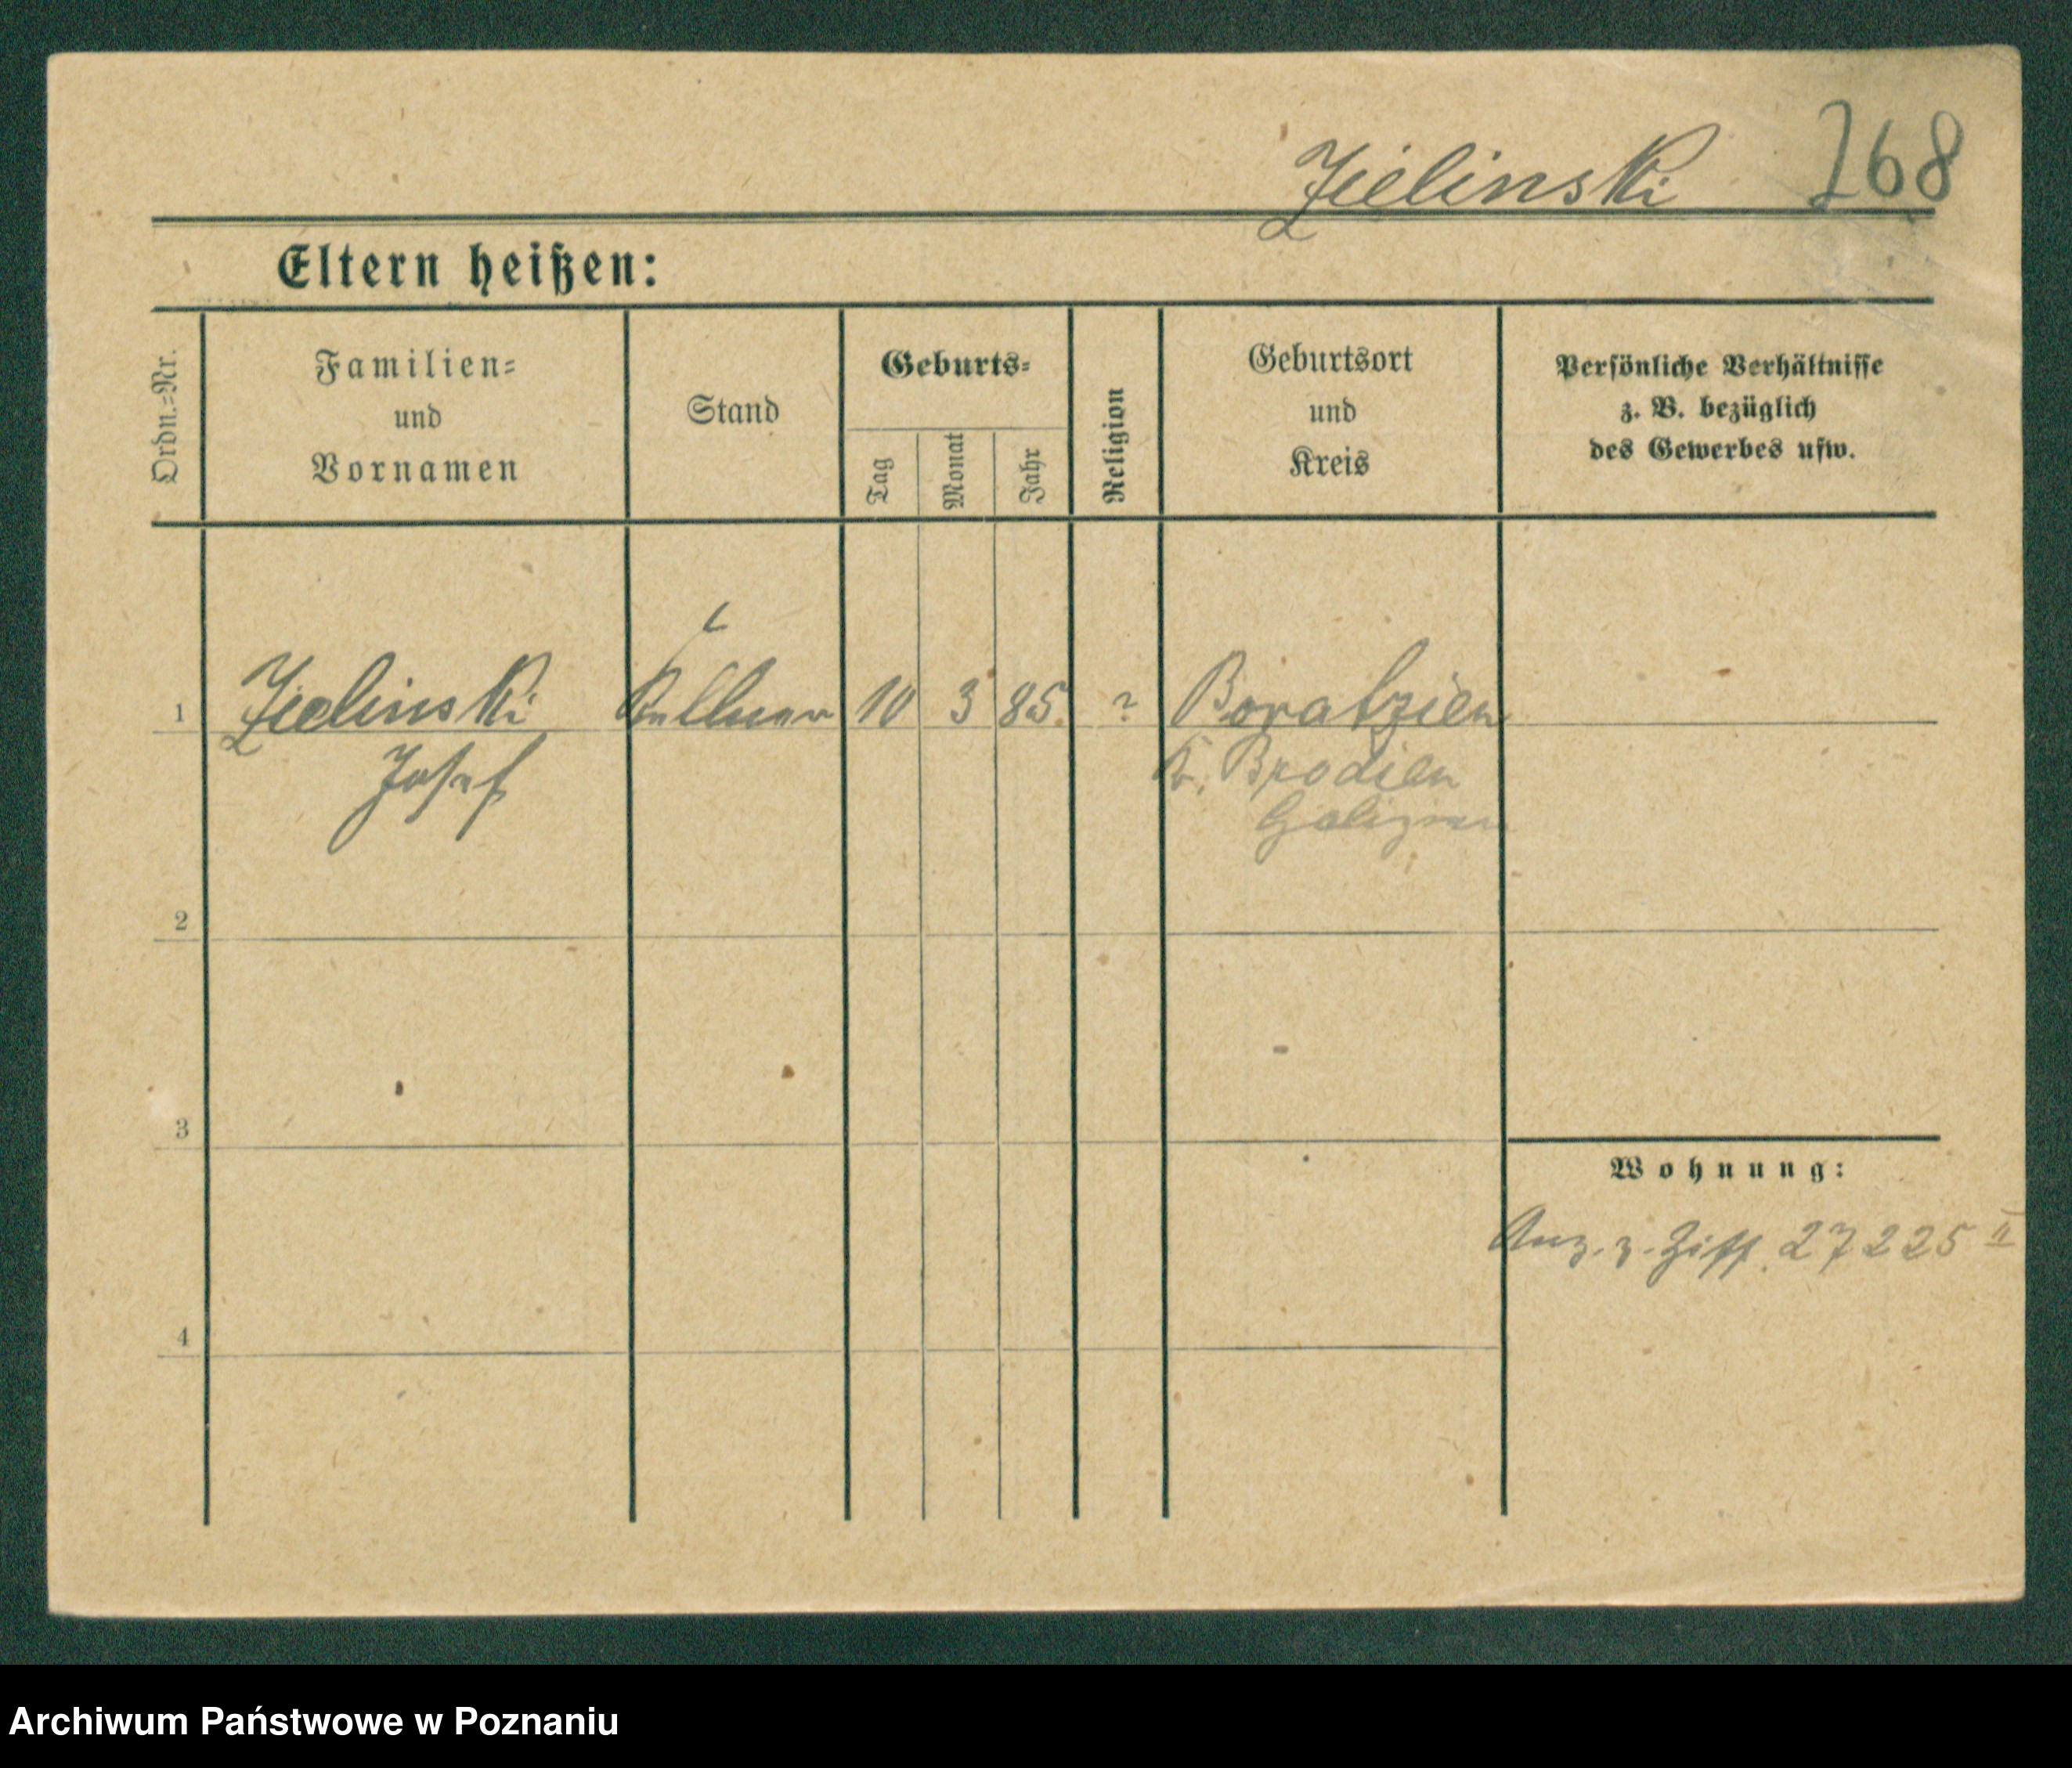 Zielinski 268
Eltern heißen:
Ordn.=Nr.
Familien=
und
Vornamen
Stand
Geburts=
Tag
Monat
Jahr
Religion
Geburtsort
und
Kreis
Persönliche Verhältnisse
z. B. bezüglich
des Gewerbes usw.
1 Zielinski Kellner 10 3 85. ? Boratzien
Josef K. Brodien
Galizien
2
3
Wohnung:
Anz. z. Ziff. 27225 II
4
Archiwum Państwowe w Poznaniu